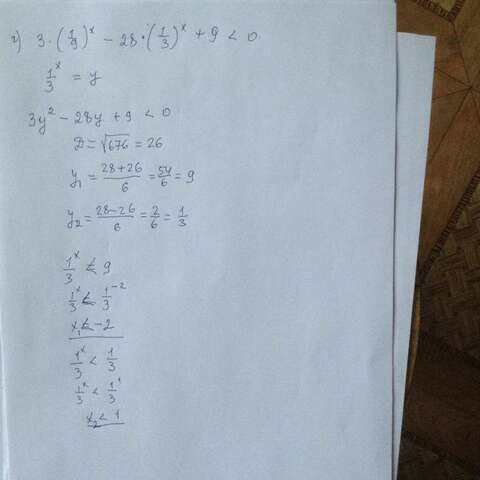 г) 3·(1/9)^x − 28·(1/3)^x + 9 < 0
1/3^x = y
3y² − 28y + 9 < 0
D = √676 = 26
y₁ = (28+26)/6 = 54/6 = 9
y₂ = (28−26)/6 = 2/6 = 1/3
1/3^x ≤ 9
1/3^x ≤ 1/3^−2
x₁ ≤ −2
1/3^x < 1/3
1/3^x < 1/3^1
x₂ < 1